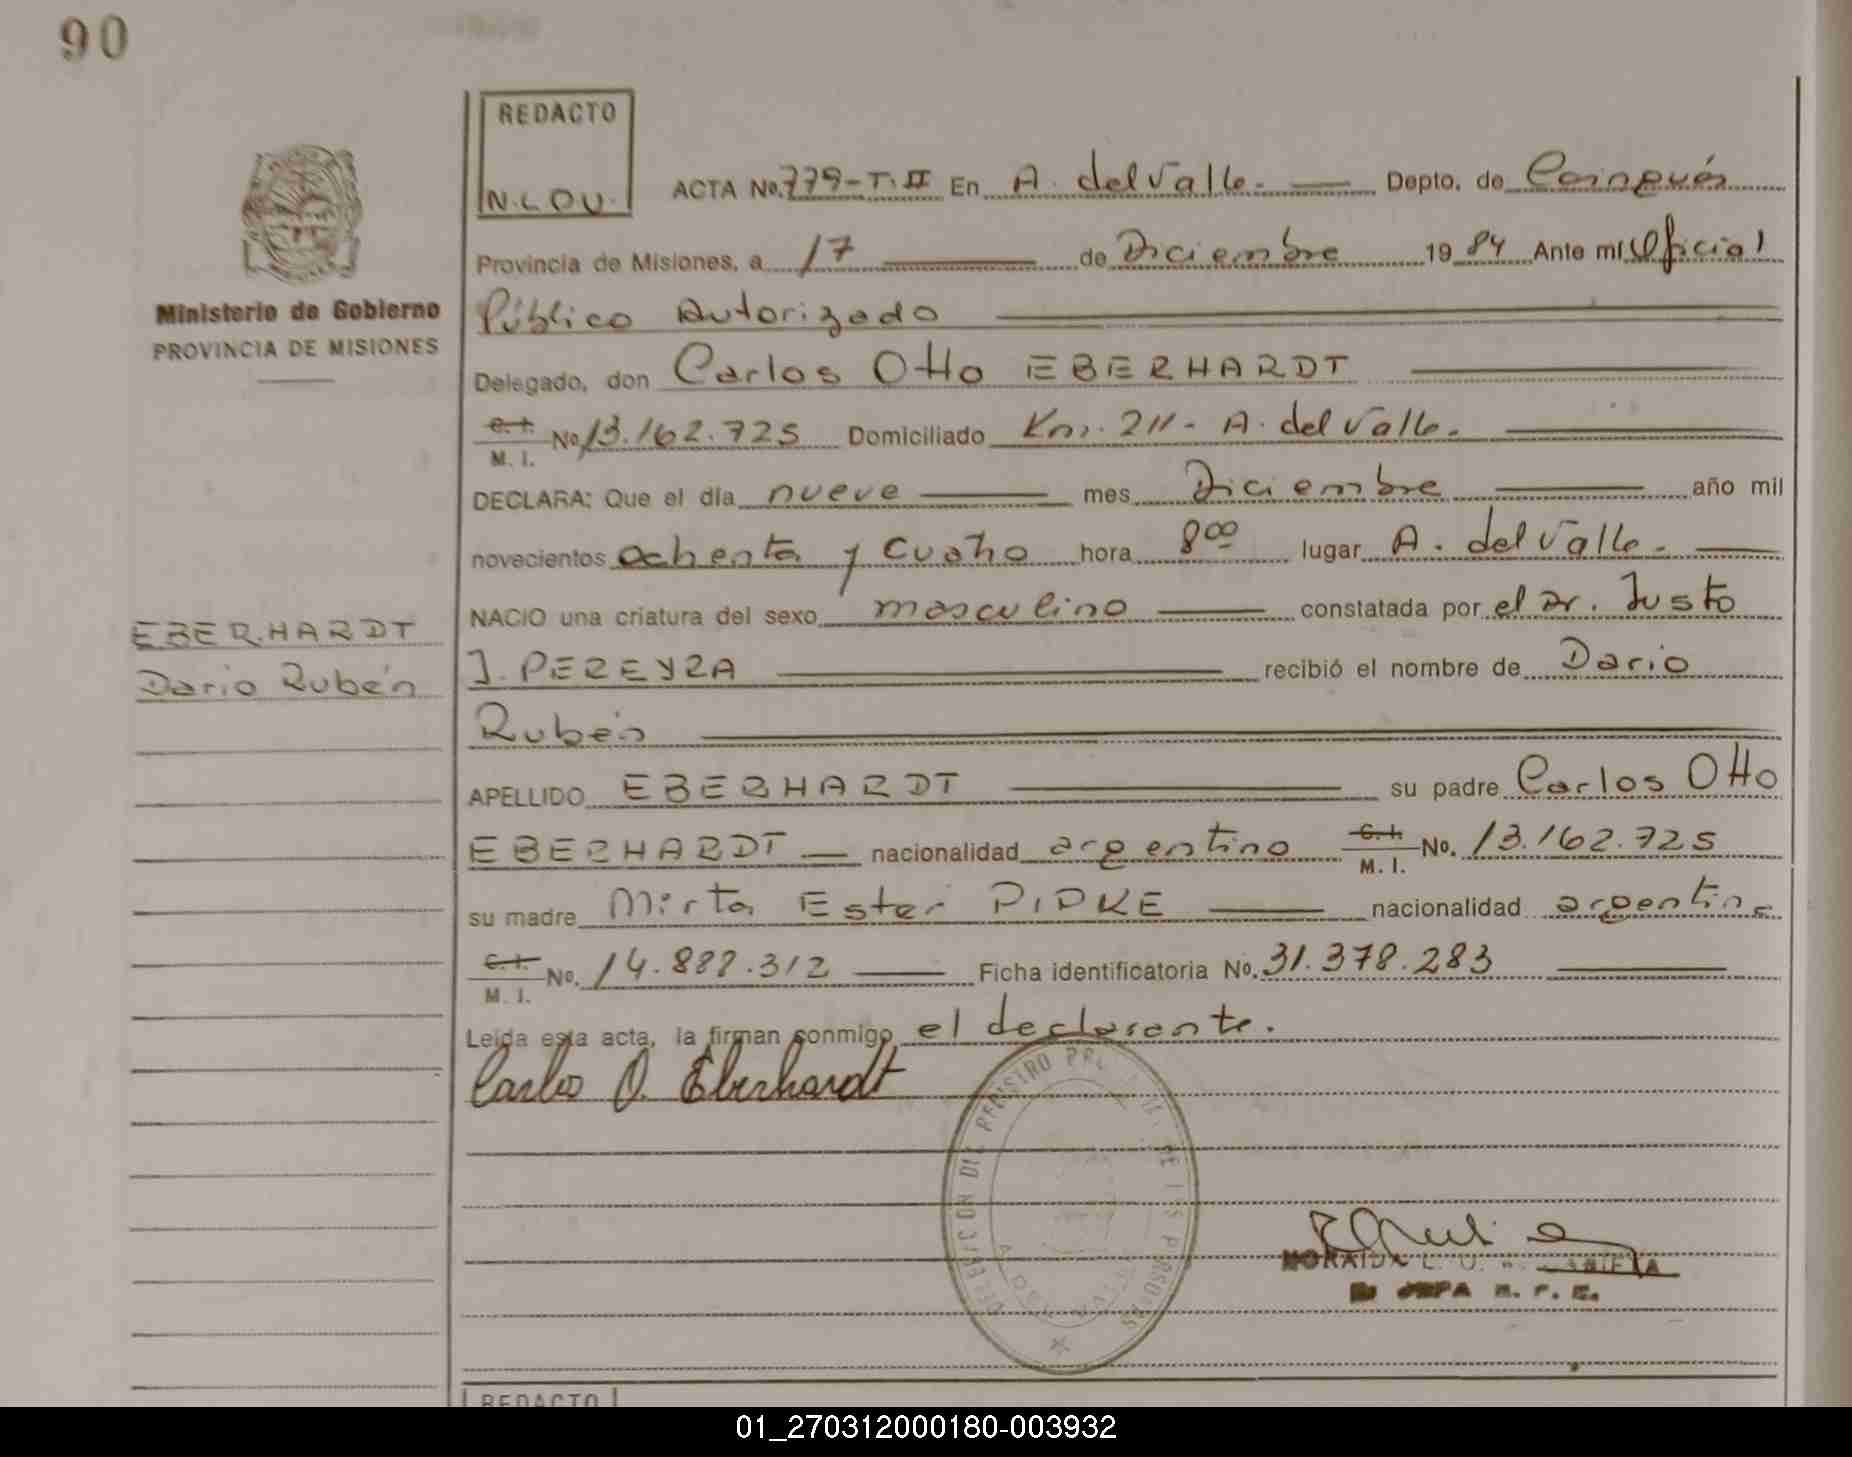 90
REDACTO
N.L.D.V.
ACTA No. 779-T. II En A. del Valle. Depto. de Cainguás
Provincia de Misiones, a 17 de Diciembre 1984 Ante mí Oficial
Ministerio de Gobierno
PROVINCIA DE MISIONES
Público Autorizado
Delegado, don Carlos Otto EBERHARDT
C. I. M. I. No 13.162.725 Domiciliado Km. 211 - A. del Valle.
DECLARA: Que el día nueve mes Diciembre año mil
novecientos ochenta y cuatro hora 8 00 lugar A. del Valle.
NACIO una criatura del sexo masculino constatada por el Dr. Justo
EBERHARDT
Dario Rubén
J. PEREYRA recibió el nombre de Dario
Rubén
APELLIDO EBERHARDT su padre Carlos Otto
EBERHARDT nacionalidad argentino C. I. M. I. No. 13.162.725
su madre Mirta Ester PIPKE nacionalidad argentina
C. I. M. I. No. 14.888.312 Ficha identificatoria No. 31.378.283
Leída esta acta, la firman conmigo el declarante.
Carlos O. Eberhardt
REGISTRO
DE LAS PERSONAS
NORAIDA L.
JEFA
REDACTO
01_270312000180-003932